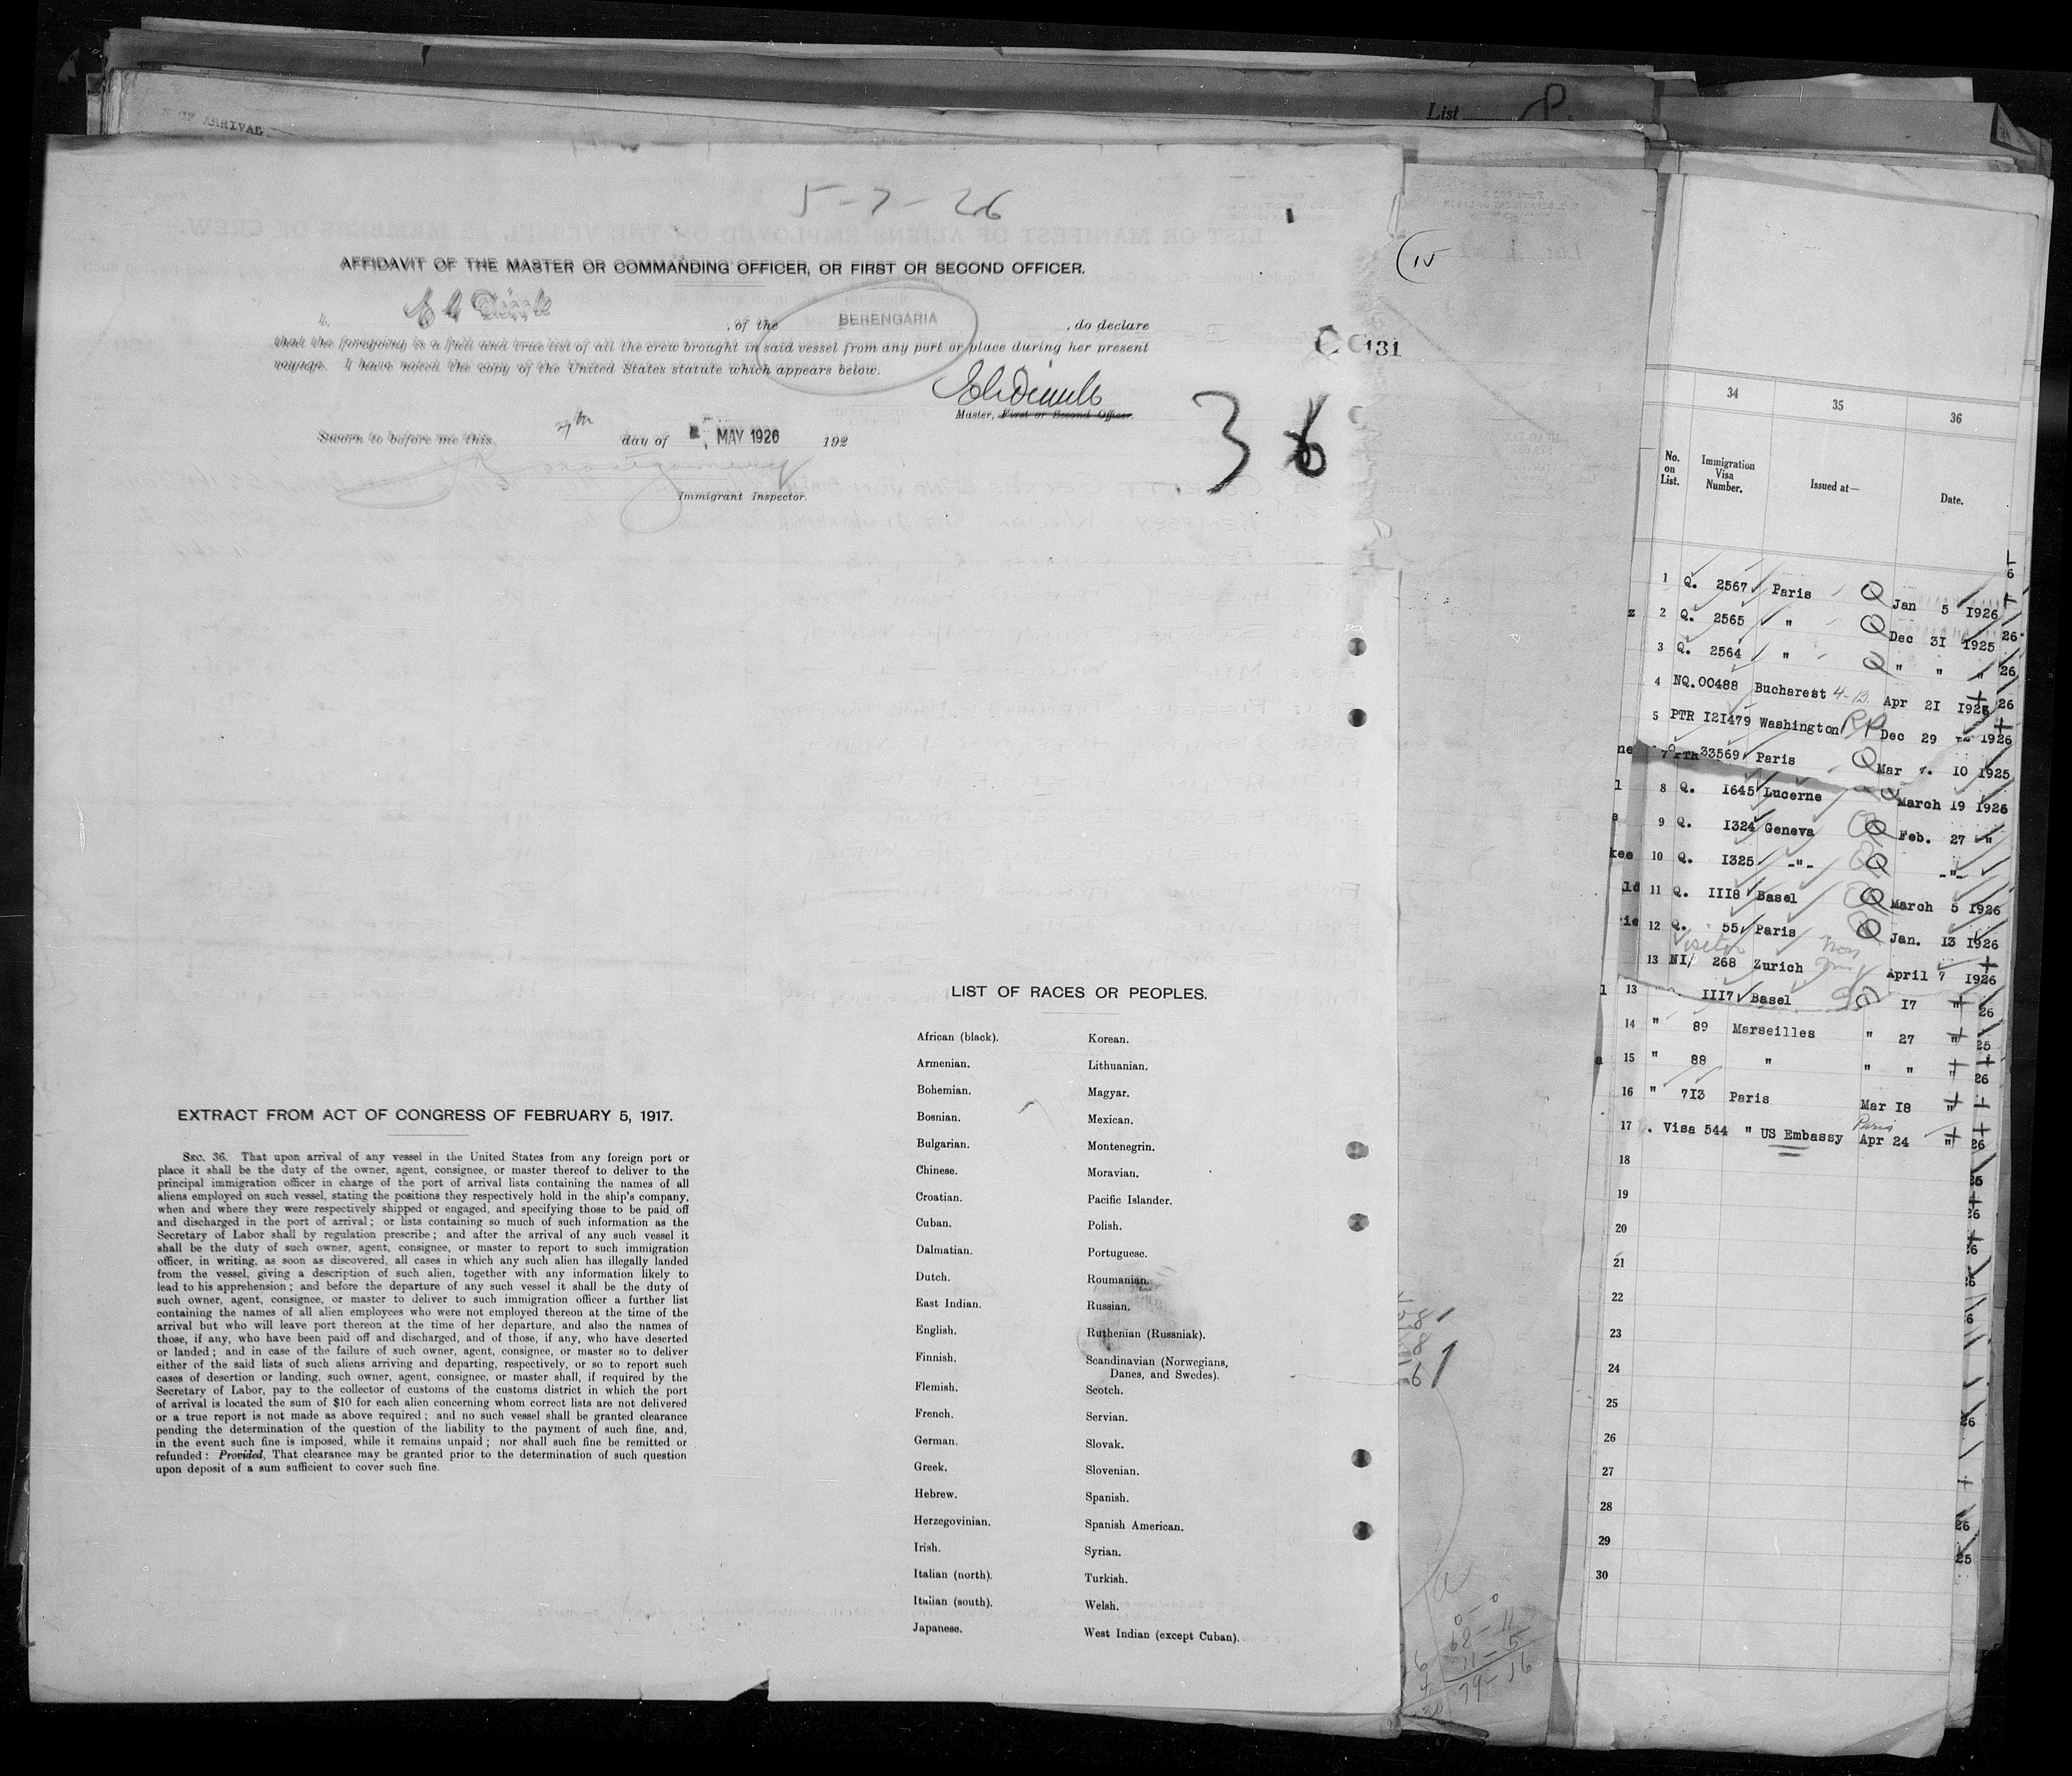 List
OF ARRIVAL
5-7-26
AFFIDAVIT OF THE MASTER OR COMMANDING OFFICER, OR FIRST OR SECOND OFFICER.
I, , of the BERENGARIA , do declare
that the foregoing is a full and true list of all the crew brought in said vessel from any port or place during her present
voyage. I have noted the copy of the United States statute which appears below.
Master, First or Second Officer.
Sworn to before me this 7th day of MAY 1926 192
Immigrant Inspector.
131
36
LIST OF RACES OR PEOPLES.
African (black).
Armenian.
Bohemian.
Bosnian.
Bulgarian.
Chinese.
Croatian.
Cuban.
Dalmatian.
Dutch.
East Indian.
English.
Finnish.
Flemish.
French.
German.
Greek.
Hebrew.
Herzegovinian.
Irish.
Italian (north).
Italian (south).
Japanese.
Korean.
Lithuanian.
Magyar.
Mexican.
Montenegrin.
Moravian.
Pacific Islander.
Polish.
Portuguese.
Roumanian.
Russian.
Ruthenian (Russniak).
Scandinavian (Norwegians,
Danes, and Swedes).
Scotch.
Servian.
Slovak.
Slovenian.
Spanish.
Spanish American.
Syrian.
Turkish.
Welsh.
West Indian (except Cuban).
EXTRACT FROM ACT OF CONGRESS OF FEBRUARY 5, 1917.
SEC. 36. That upon arrival of any vessel in the United States from any foreign port or
place it shall be the duty of the owner, agent, consignee, or master thereof to deliver to the
principal immigration officer in charge of the port of arrival lists containing the names of all
aliens employed on such vessel, stating the positions they respectively hold in the ship's company,
when and where they were respectively shipped or engaged, and specifying those to be paid off
and discharged in the port of arrival; or lists containing so much of such information as the
Secretary of Labor shall by regulation prescribe; and after the arrival of any such vessel it
shall be the duty of such owner, agent, consignee, or master to report to such immigration
officer, in writing, as soon as discovered, all cases in which any such alien has illegally landed
from the vessel, giving a description of such alien, together with any information likely to
lead to his apprehension; and before the departure of any such vessel it shall be the duty of
such owner, agent, consignee, or master to deliver to such immigration officer a further list
containing the names of all alien employees who were not employed thereon at the time of the
arrival but who will leave port thereon at the time of her departure, and also the names of
those, if any, who have been paid off and discharged, and of those, if any, who have deserted
or landed; and in case of the failure of such owner, agent, consignee, or master so to deliver
either of the said lists of such aliens arriving and departing, respectively, or so to report such
cases of desertion or landing, such owner, agent, consignee, or master shall, if required by the
Secretary of Labor, pay to the collector of customs of the customs district in which the port
of arrival is located the sum of $10 for each alien concerning whom correct lists are not delivered
or a true report is not made as above required; and no such vessel shall be granted clearance
pending the determination of the question of the liability to the payment of such fine, and,
in the event such fine is imposed, while it remains unpaid; nor shall such fine be remitted or
refunded: Provided, That clearance may be granted prior to the determination of such question
upon deposit of a sum sufficient to cover such fine.
34 35 36
No. on List. Immigration Visa Number. Issued at— Date.
1 Q. 2567 Paris Q Jan 5 1926
2 Q. 2565 " Q Dec 31 1925
3 Q. 2564 " Q " " "
4 NQ. 00488 Bucharest 4-B. Apr 21 1926
5 PTR 121479 Washington RP Dec 29 1926
7 PTR 33569 Paris Q Mar 10 1925
8 Q. 1645 Lucerne Q March 19 1926
9 Q. 1324 Geneva Q Feb. 27 "
10 Q. 1325 -"- Q -"-
11 Q. 1118 Basel Q March 5 1926
12 Q. 55 Paris Q Jan. 13 1926
13 NI/ 268 Zurich April 7 1926
13 1117 Basel 17 "
14 " 89 Marseilles " 27 "
15 " 88 " " " "
16 " 713 Paris Mar 18 "
17 . Visa 544 " US Embassy Paris Apr 24 "
18
19
20
21
22
23
24
25
26
27
28
29
30